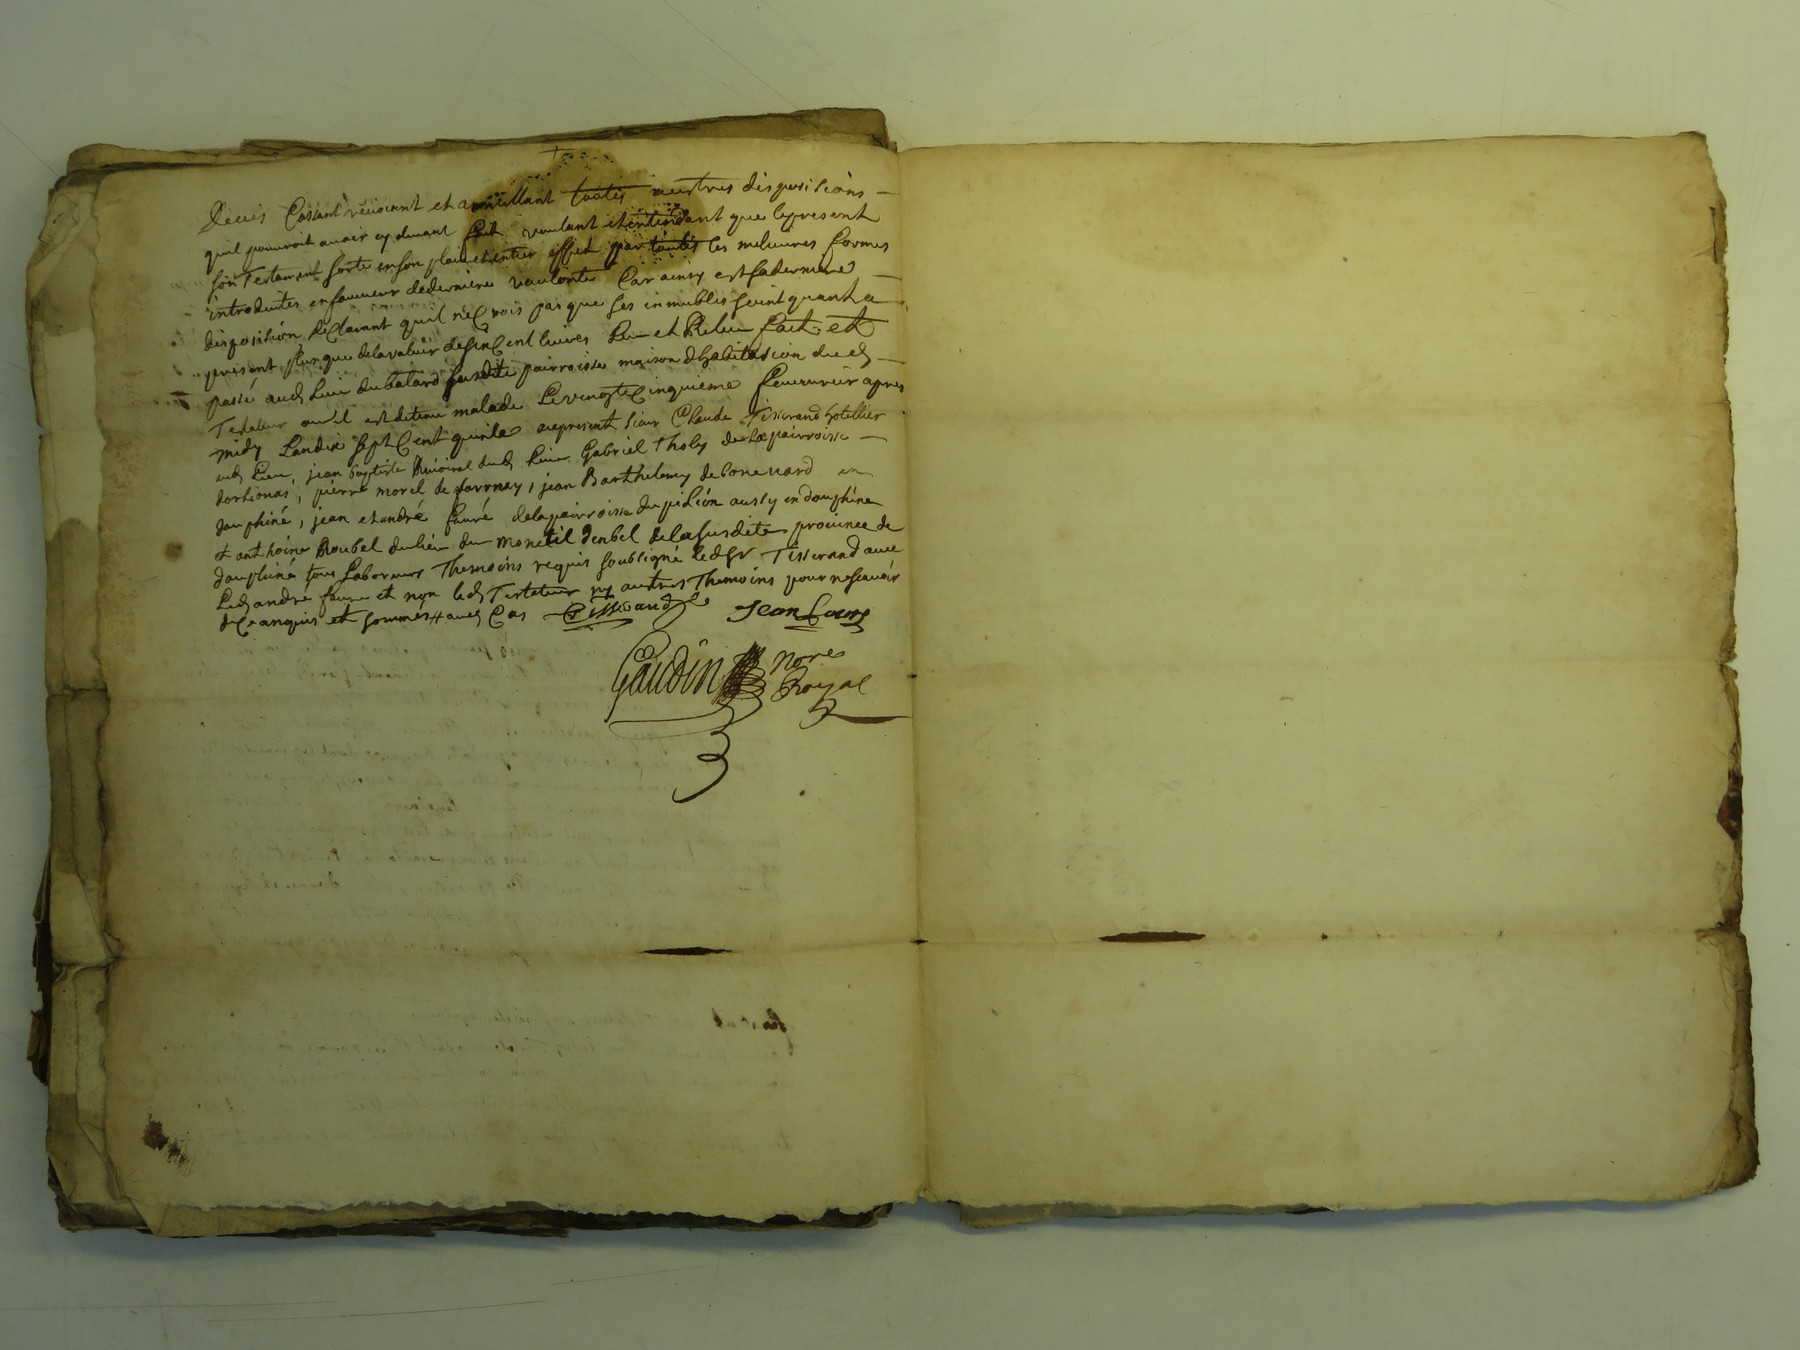 decés Cassant revocant et annullant toutes autres dispositions
quil pourroit avoir cy devant fait voulant et entendant que le present
son Testament sorte en son plain et entier effect par toutes les melieures formes
introduites en faveur de derniere voulonté Car ainsy est sa derniere
disposition declarant quil ne Crois pas que ses inmubles soint quant a
present plus que de la valeur de Cent livres Leu et Releu fait et
passé aud lieu du batard susdite pairroisse maison d'habitation dud
Testateur ou il est detenu malade Le vingt Cinquieme fevurier apres
midy Landix sept Cent quinze a present sieur Claude Tisserand hotellier
aud Lieu, jean baptiste dud lieu Gabriel Tholy de la pairroisse
dortionas, pierre morel de favernay, jean Barthelemy de bonevard en
dauphiné, jean et andré fauré de la pairroisse du piléon aussy en dauphine
& anthoine Roubel du lieu du monetil denbel de la susdite province de
dauphiné tous Laboreurs Themoins requis soubsigné led sr Tisserand avec
Led andré faure et non led Testateur ny autres Themoins pour ne scavoir
de Ce anquis et sommés aud Cas Tisserand Jean
Gaudin Nore
Royal